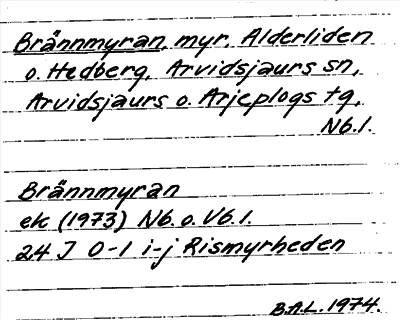 Brännmyran, myr, Alderliden
o. Hedberg, Arvidsjaurs sn,
Arvidsjaurs o. Arjeplogs tg,
Nb.l.
Brännmyran
ek (1973) Nb. o. Vb.l.
24 J 0-1 i-j Rismyrheden
B.A.L. 1974.